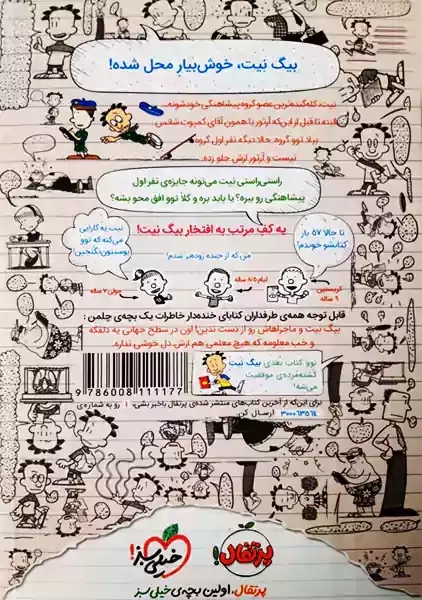 بیگ نِیت، خوش‌بیارِ محل شده!
نِیت، کله‌گنده‌ترین عضو گروه پیشاهنگی خودشونه.
البته تا قبل از این‌که آرتور با همون آقای کمپوت شانس
بیاد توو گروه. حالا دیگه نفر اول گروه
نیست و آرتور ازش جلو زده.
راستی‌راستی نیت می‌تونه جایزه‌ی نفر اول
پیشاهنگی رو ببره؟ یا باید بره و کلاً توو افق محو بشه؟
یه کف مرتب به افتخار بیگ نِیت!
تا حالا ۵۷ بار
کتابشو خوندم!
من که از خنده روده‌بر شدم!
نیت یه کارایی
می‌کنه که توو
پوستتون نگنجین!
کریستین
۹ ساله
لیام ۸/۵ ساله
جولی ۷ ساله
قابل توجه همه‌ی طرفدارای کتابای خنده‌دار خاطرات یک بچه‌ی چلمن:
بیگ نیت و ماجراهاش رو از دست ندین! اون در سطح جهانی یه دلقکه
و خب معلومه که هیچ معلمی هم ازش دل خوشی نداره.
توو کتاب بَعدی بیگ نیت
کشته‌مُرده‌ی موفقیت
می‌شه!
9 786008 111177
برای این‌که از آخرین کتاب‌های منتشر شده‌ی پرتقال باخبر بشی،
رو به شماره‌ی
۳۰۰۰۶۳۵۶۴ ارسال کن.
پرتقال!
خیلی سبز!
پرتقال، اولین بچه‌ی خیلی سبز